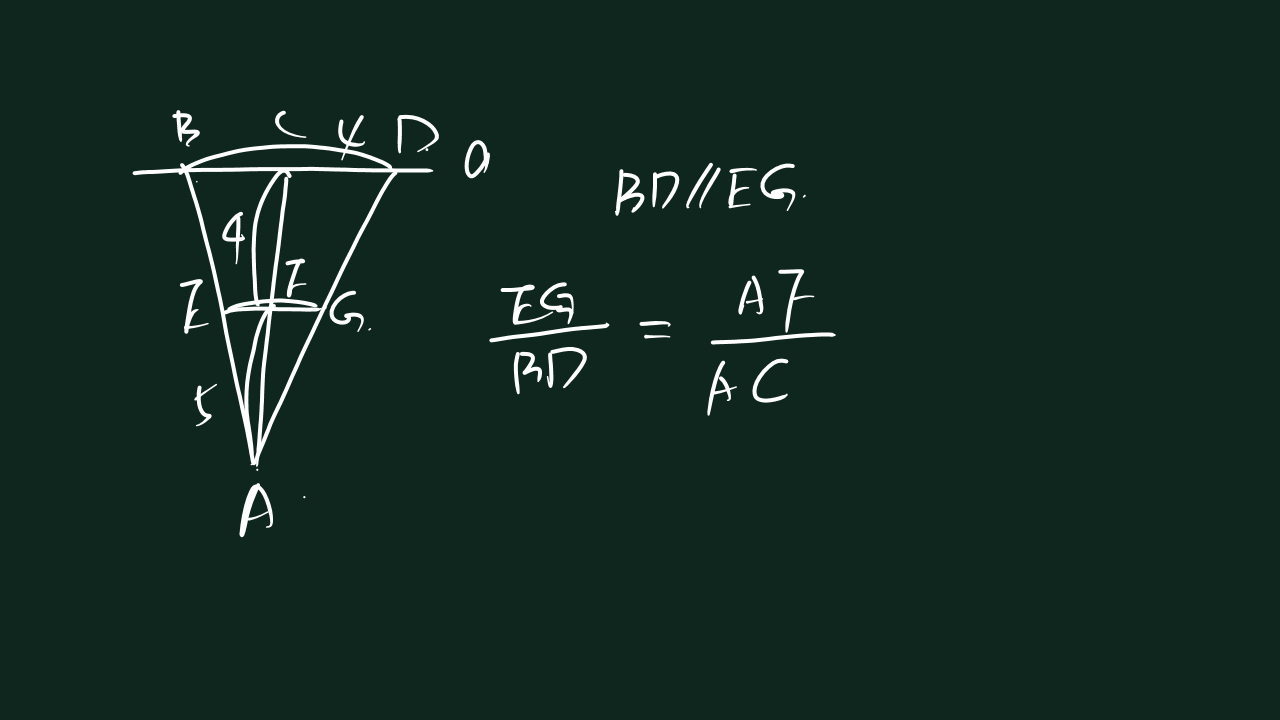 B C 4 D 0
4
E F G.
5
A
BD//EG.
EG/BD = AF/AC